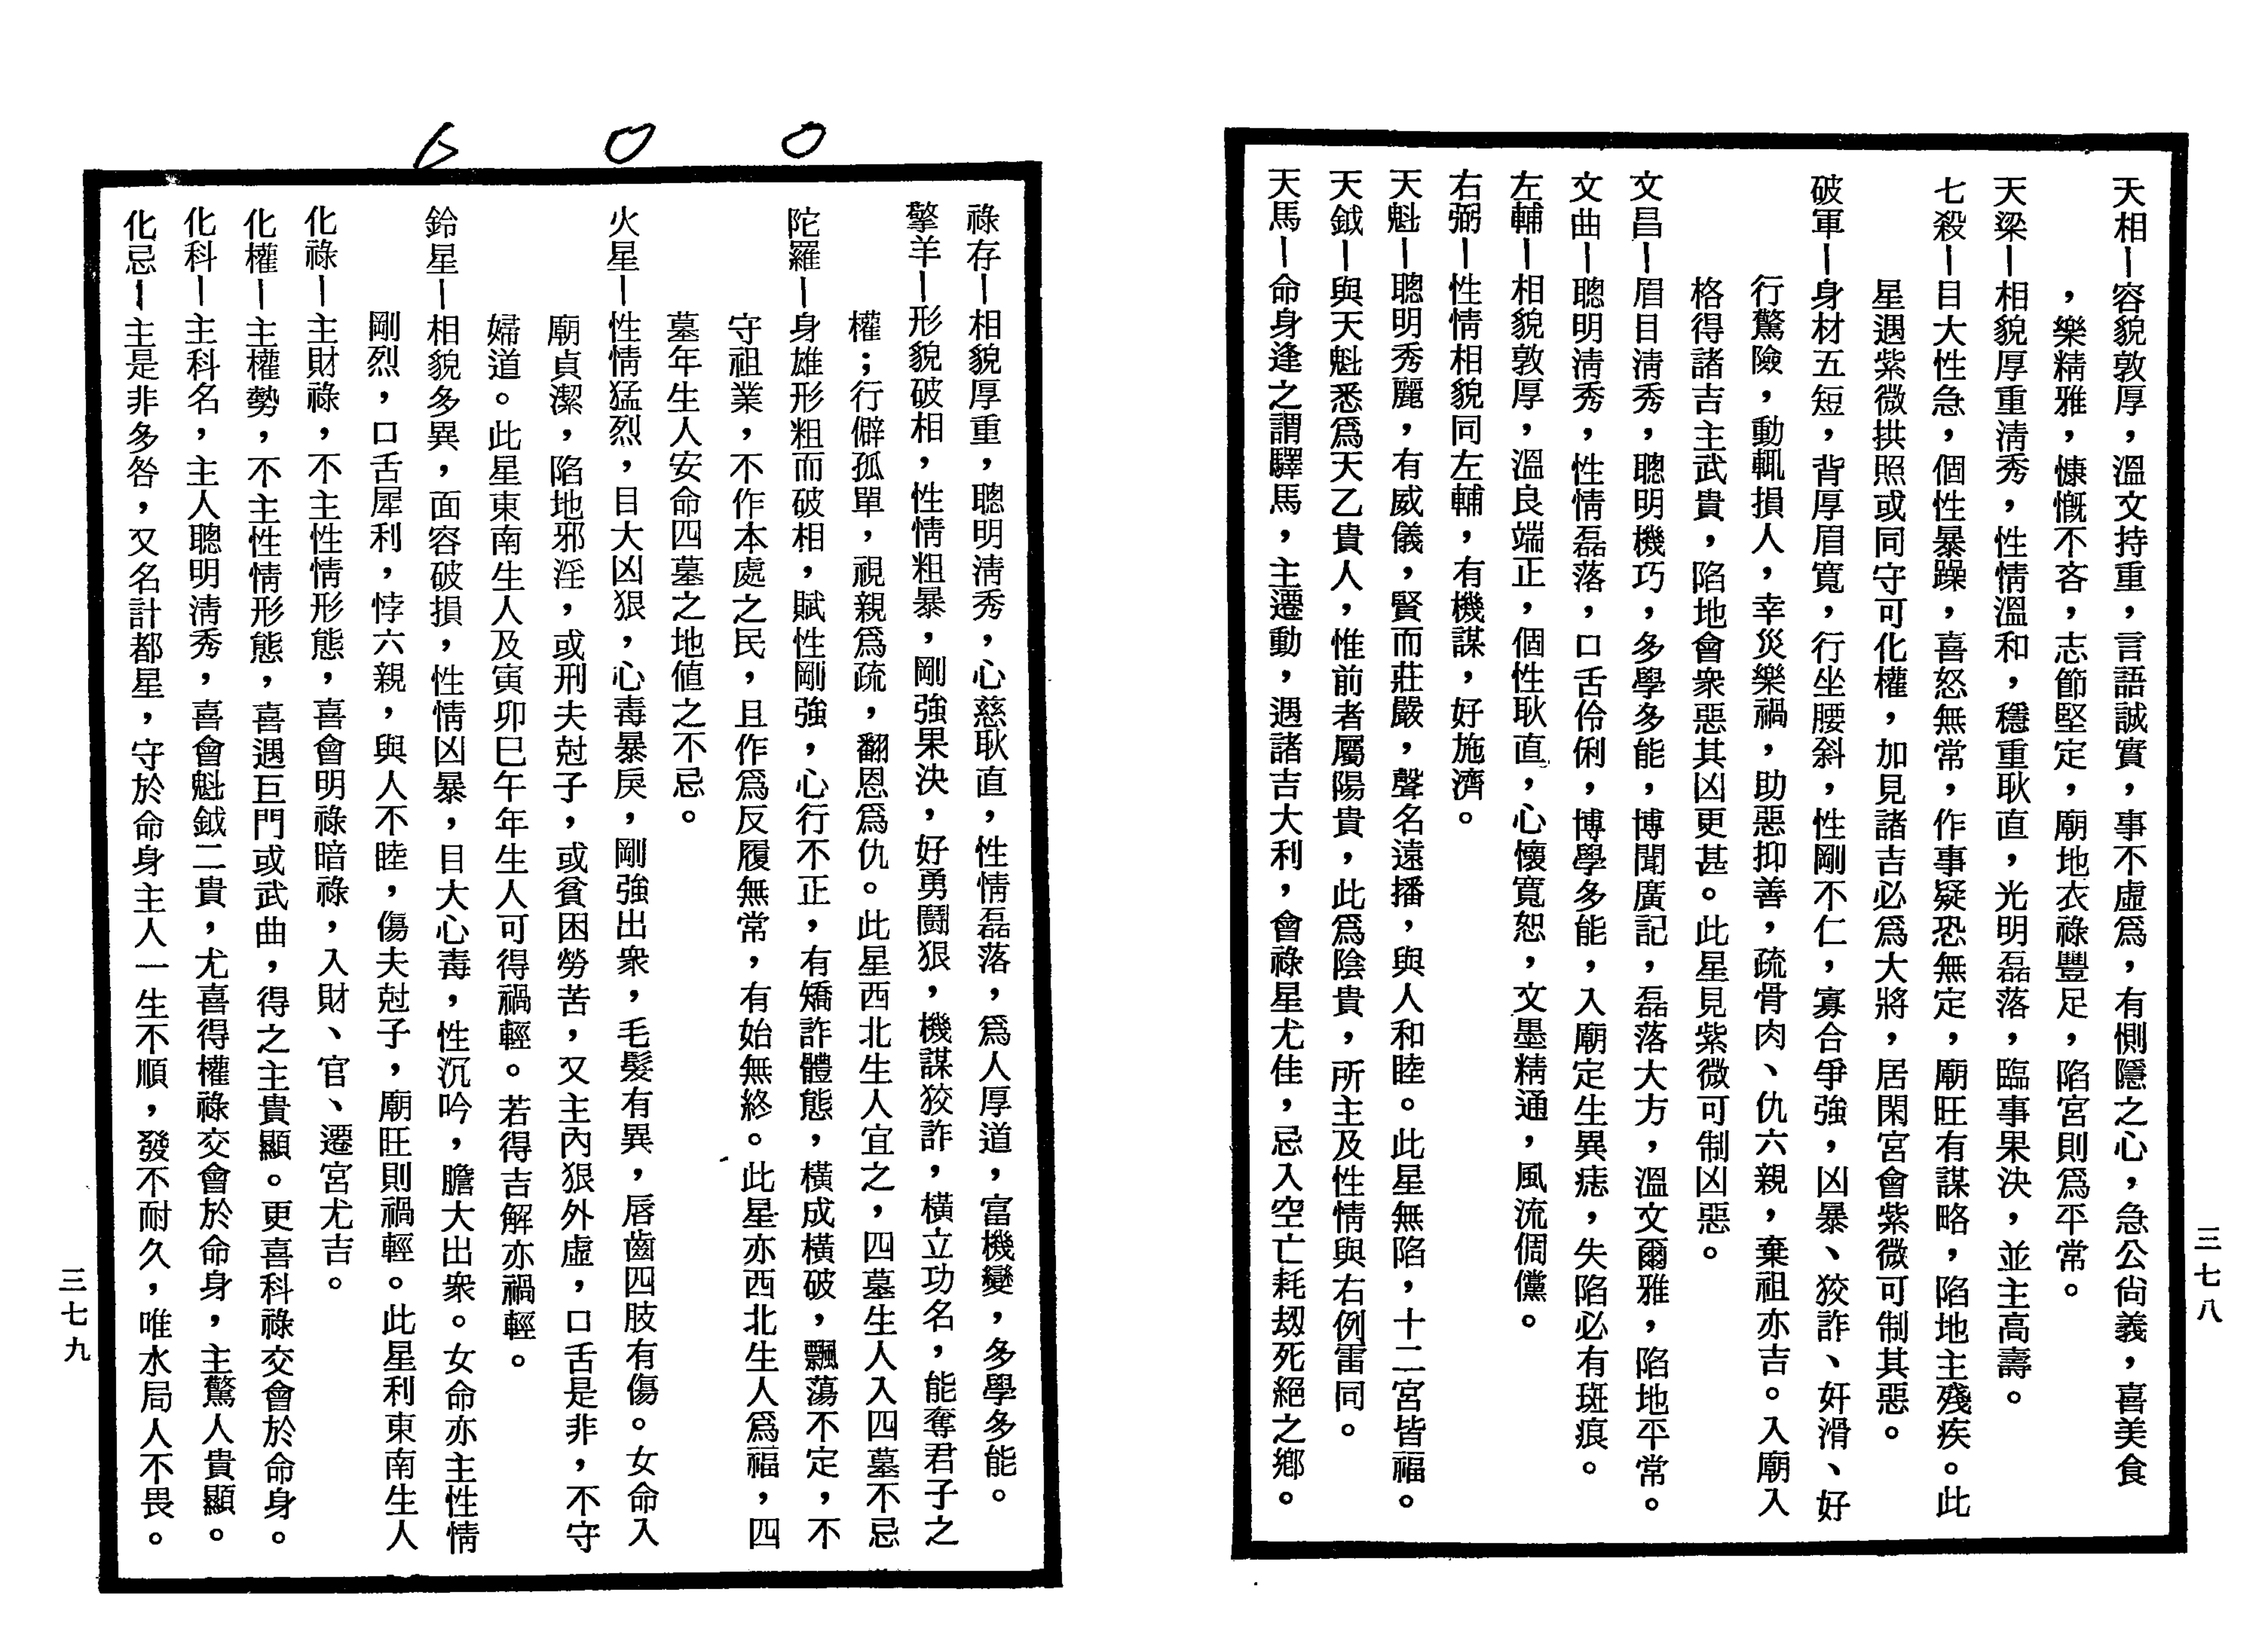 天相—容貌敦厚，溫文持重，言語誠實，事不虛爲，有惻隱之心，急公尙義，喜美食
，樂精雅，慷慨不吝，志節堅定，廟地衣祿豐足，陷宮則爲平常。
天梁—相貌厚重淸秀，性情溫和，穩重耿直，光明磊落，臨事果決，並主高壽。
七殺—目大性急，個性暴躁，喜怒無常，作事疑恐無定，廟旺有謀略，陷地主殘疾。此
星遇紫微拱照或同守可化權，加見諸吉必爲大將，居閑宮會紫微可制其惡。
破軍—身材五短，背厚眉寬，行坐腰斜，性剛不仁，寡合爭強，凶暴、狡詐、奸滑、好
行驚險，動輒損人，幸災樂禍，助惡抑善，疏骨肉、仇六親，棄祖亦吉。入廟入
格得諸吉主武貴，陷地會衆惡其凶更甚。此星見紫微可制凶惡。
文昌—眉目淸秀，聰明機巧，多學多能，博聞廣記，磊落大方，溫文爾雅，陷地平常。
文曲—聰明淸秀，性情磊落，口舌伶俐，博學多能，入廟定生異痣，失陷必有斑痕。
左輔—相貌敦厚，溫良端正，個性耿直，心懷寬恕，文墨精通，風流倜儻。
右弼—性情相貌同左輔，有機謀，好施濟。
天魁—聰明秀麗，有威儀，賢而莊嚴，聲名遠播，與人和睦。此星無陷，十二宮皆福。
天鉞—與天魁悉爲天乙貴人，惟前者屬陽貴，此爲陰貴，所主及性情與右例雷同。
天馬—命身逢之謂驛馬，主遷動，遇諸吉大利，會祿星尤佳，忌入空亡耗刼死絕之鄕。
三七八
600
祿存—相貌厚重，聰明淸秀，心慈耿直，性情磊落，爲人厚道，富機變，多學多能。
擎羊—形貌破相，性情粗暴，剛強果決，好勇鬪狠，機謀狡詐，橫立功名，能奪君子之
權；行僻孤單，視親爲疏，翻恩爲仇。此星西北生人宜之，四墓生人入四墓不忌
陀羅—身雄形粗而破相，賦性剛強，心行不正，有矯詐體態，橫成橫破，飄蕩不定，不
守祖業，不作本處之民，且作爲反履無常，有始無終。此星亦西北生人爲福，四
墓年生人安命四墓之地値之不忌。
火星—性情猛烈，目大凶狠，心毒暴戾，剛強出衆，毛髮有異，唇齒四肢有傷。女命入
廟貞潔，陷地邪淫，或刑夫尅子，或貧困勞苦，又主內狠外虛，口舌是非，不守
婦道。此星東南生人及寅卯巳午年生人可得禍輕。若得吉解亦禍輕。
鈴星—相貌多異，面容破損，性情凶暴，目大心毒，性沉吟，膽大出衆。女命亦主性情
剛烈，口舌犀利，悖六親，與人不睦，傷夫尅子，廟旺則禍輕。此星利東南生人
化祿—主財祿，不主性情形態，喜會明祿暗祿，入財、官、遷宮尤吉。
化權—主權勢，不主性情形態，喜遇巨門或武曲，得之主貴顯。更喜科祿交會於命身。
化科—主科名，主人聰明淸秀，喜會魁鉞二貴，尤喜得權祿交會於命身，主驚人貴顯。
化忌—主是非多咎，又名計都星，守於命身主人一生不順，發不耐久，唯水局人不畏。
三七九